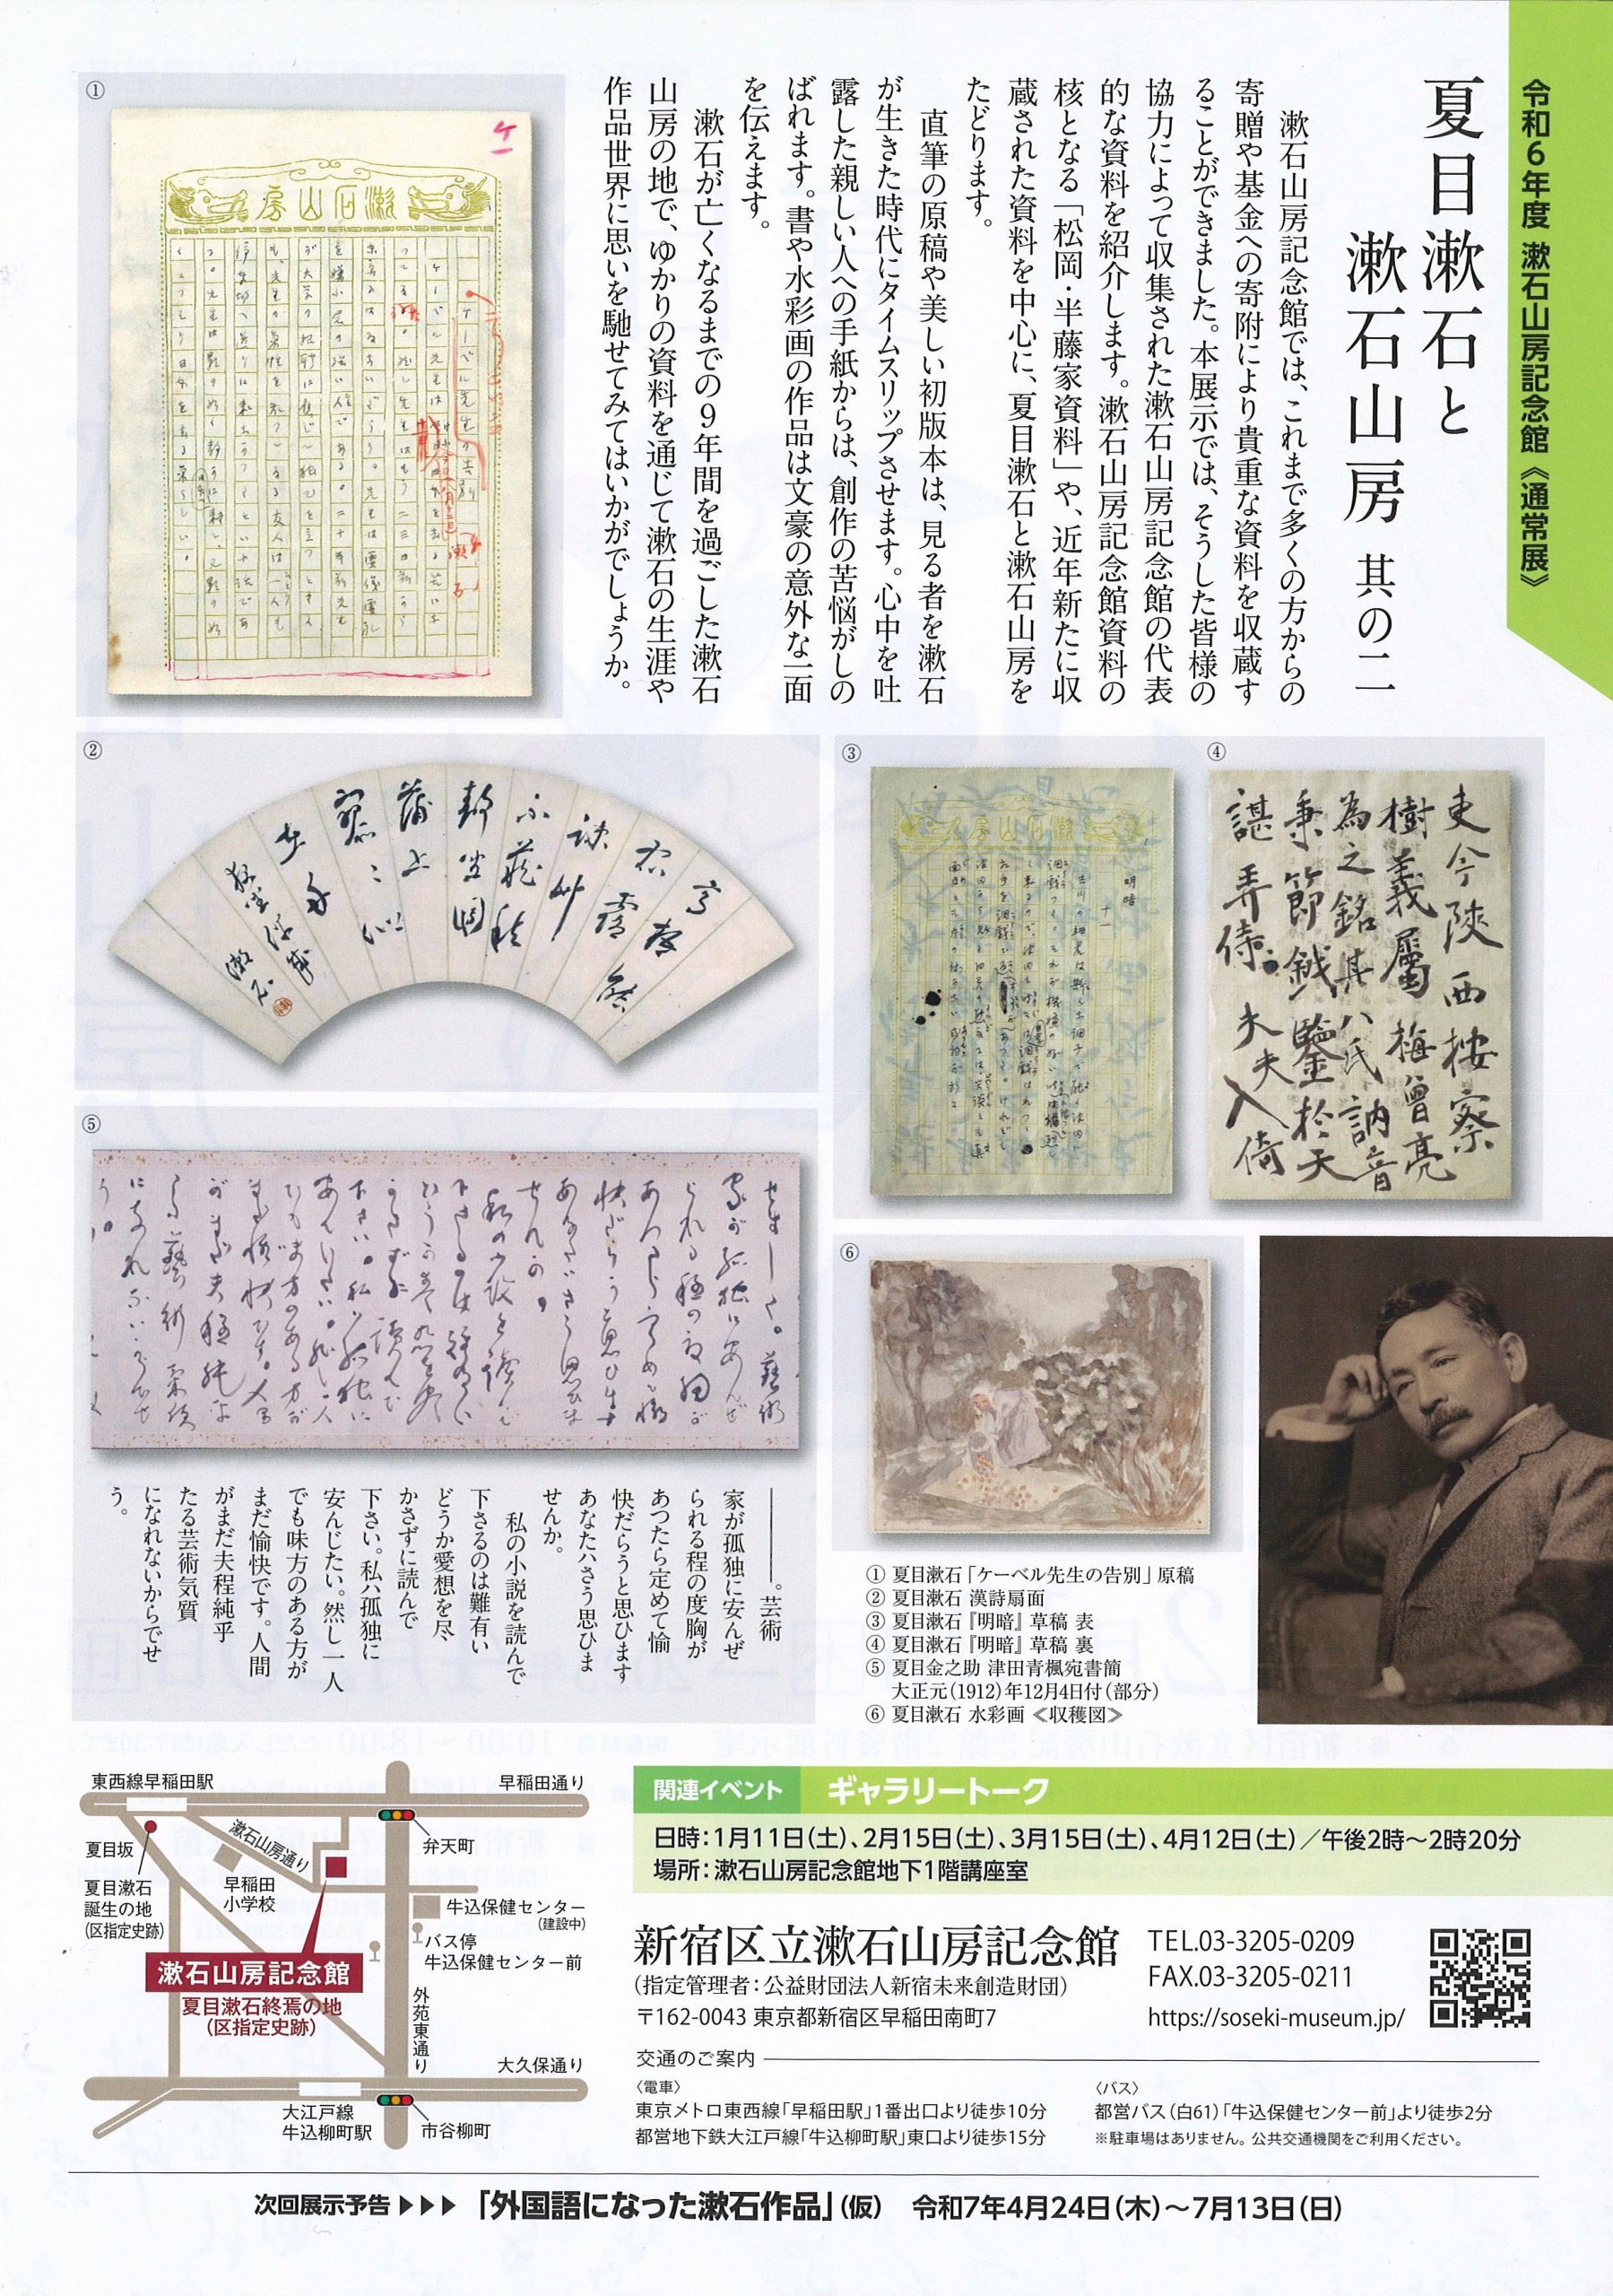 令和6年度 漱石山房記念館《通常展》
夏目漱石と
漱石山房 其の二
漱石山房記念館では、これまで多くの方からの
寄贈や基金への寄附により貴重な資料を収蔵す
ることができました。本展示では、そうした皆様の
協力によって収集された漱石山房記念館の代表
的な資料を紹介します。漱石山房記念館資料の
核となる「松岡・半藤家資料」や、近年新たに収
蔵された資料を中心に、夏目漱石と漱石山房を
たどります。
直筆の原稿や美しい初版本は、見る者を漱石
が生きた時代にタイムスリップさせます。心中を吐
露した親しい人への手紙からは、創作の苦悩がしの
ばれます。書や水彩画の作品は文豪の意外な一面
を伝えます。
漱石が亡くなるまでの9年間を過ごした漱石
山房の地で、ゆかりの資料を通じて漱石の生涯や
作品世界に思いを馳せてみてはいかがでしょうか。
①
房山石漱
②
③
房山石漱
明暗
十一
④
吏今陝西按察
樹義属梅曾亮
為之銘其八氏訥音
秉節鉞鑒於天
諶弄侍
⑤
⑥
―――。芸術
家が孤独に安んぜ
られる程の度胸が
あつたら定めて愉
快だらうと思ひます
あなたハさう思ひま
せんか。
私の小説を読んで
下さるのは難有い
どうか愛想を尽
かさずに読んで
下さい。私ハ孤独に
安んじたい。然し一人
でも味方のある方が
まだ愉快です。人間
がまだ夫程純乎
たる芸術気質
になれないからでせ
う。
① 夏目漱石「ケーベル先生の告別」原稿
② 夏目漱石 漢詩扇面
③ 夏目漱石『明暗』草稿 表
④ 夏目漱石『明暗』草稿 裏
⑤ 夏目金之助 津田青楓宛書簡
大正元(1912)年12月4日付(部分)
⑥ 夏目漱石 水彩画 ≪収穫図≫
東西線早稲田駅
早稲田通り
夏目坂
漱石山房通り
弁天町
夏目漱石
誕生の地
(区指定史跡)
早稲田
小学校
牛込保健センター
(建設中)
バス停
牛込保健センター前
漱石山房記念館
夏目漱石終焉の地
(区指定史跡)
外苑東通り
大久保通り
大江戸線
牛込柳町駅
市谷柳町
関連イベント ギャラリートーク
日時:1月11日(土)、2月15日(土)、3月15日(土)、4月12日(土)/午後2時〜2時20分
場所:漱石山房記念館地下1階講座室
新宿区立漱石山房記念館
(指定管理者:公益財団法人新宿未来創造財団)
〒162-0043 東京都新宿区早稲田南町7
TEL.03-3205-0209
FAX.03-3205-0211
https://soseki-museum.jp/
交通のご案内
〈電車〉
東京メトロ東西線「早稲田駅」1番出口より徒歩10分
都営地下鉄大江戸線「牛込柳町駅」東口より徒歩15分
〈バス〉
都営バス(白61)「牛込保健センター前」より徒歩2分
※駐車場はありません。公共交通機関をご利用ください。
次回展示予告▶▶▶「外国語になった漱石作品」(仮) 令和7年4月24日(木)〜7月13日(日)